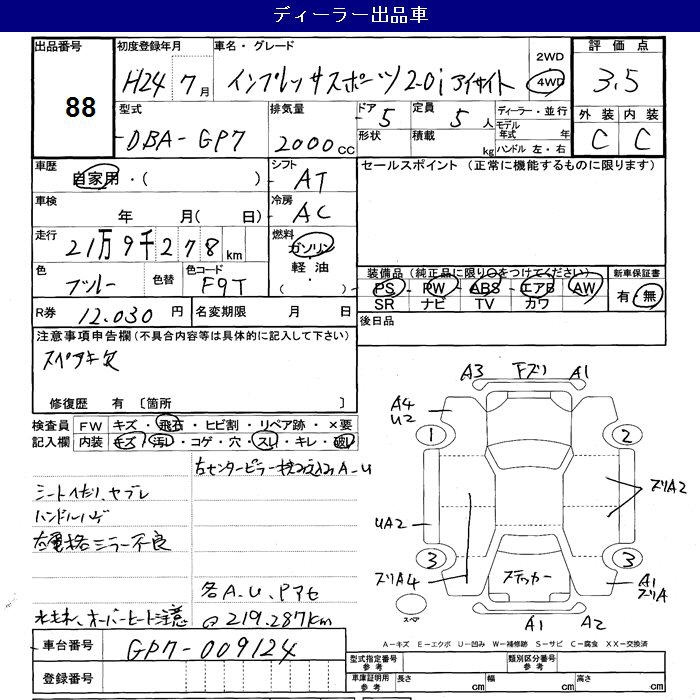 ディーラー出品車
出品番号
88
初度登録年月
H24 7月
車名・グレード
インプレッサスポーツ2.0i アイサイト
2WD
4WD
評価点
3.5
外装 内装
C C
型式
DBA-GP7
排気量
2000cc
ドア
5
形状
定員
5人
積載
kg
ディーラー・並行
モデル年式 年
ハンドル 左・右
車歴
自家用・( )
シフト
AT
車検
年 月( 日)
冷房
AC
走行
21万9千278km
燃料
ガソリン
軽油
( )
色
ブルー
色替
色コード
F9T
セールスポイント (正常に機能するものに限ります)
装備品(純正品に限り○をつけてください)
PS PW ABS エアB AW
SR ナビ TV カワ
新車保証書
有・無
R券 12.030円
名変期限 月 日
後日品
注意事項申告欄(不具合内容等は具体的に記入して下さい)
スペアキ欠
修復歴 有 〔箇所 〕
検査員記入欄
FW キズ・飛石・ヒビ割・リペア跡・×要
内装 キズ・汚レ・コゲ・穴・スレ・キレ・破レ
左センターピラー A-U
シートヘタリ、ヤブレ
ハンドルハゲ
右電格ミラー不良
各A.U.Pアセ
水もれ、オーバーヒート注意
@219.287km
A3 下ズリ A1
A4
U2
1 2
ズリA2
UA2
3 3
ズリA4
ステッカー
A1
ズリA
スペア
A1 A2
A-キズ E-エクボ U-凹み W-補修跡 S-サビ C-腐食 XX-交換済
車台番号
GP7-009124
登録番号
型式指定番号 参考
類別区分番号 参考
車庫証明用 参考
長さ cm
幅 cm
高さ cm